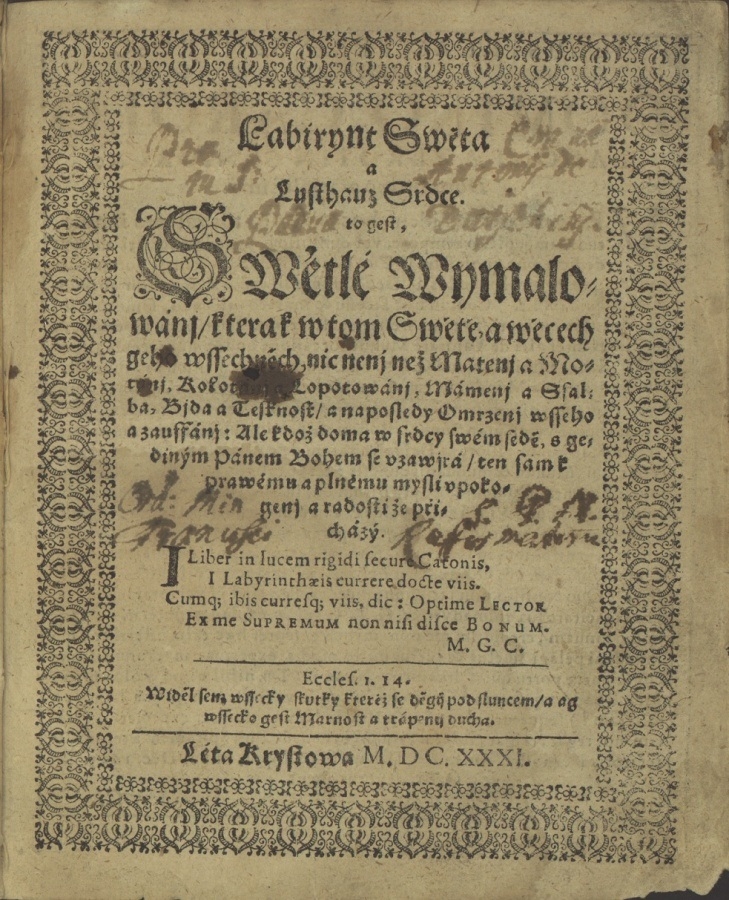 Labirynt Swěta
a
Lusthauz Srdce.
to gest,
SWětlé Wymalo-
wánj/kterak w tom Swětě a wěcech
geho wssechněch, nic nenj než Matenj a Mo-
Lopotowánj, Mámenj a Ssal-
ba, Bjda a Tesknost/ a naposledy Omrzenj wsseho
a zauffánj: Ale kdož doma w srdcy swém sedě, s ge-
diným Pánem Bohem se vzawjrá/ ten sam k
prawému a plnému mysli vpoko-
genj a radosti že při-
cházý.
I Liber in lucem rigidi secure Catonis,
I Labyrinthæis currere docte viis.
Cumq; ibis curresq; viis, dic: Optime LECTOR
Ex me SUPREMUM non nisi disce BONUM.
M. G. C.
Eccles. 1. 14.
Widěl sem wssecky skutky kteréž se děgij pod sluncem/a ag
wssecko gest Marnost a trápenij ducha.
Léta Krystowa M. DC. XXXI.